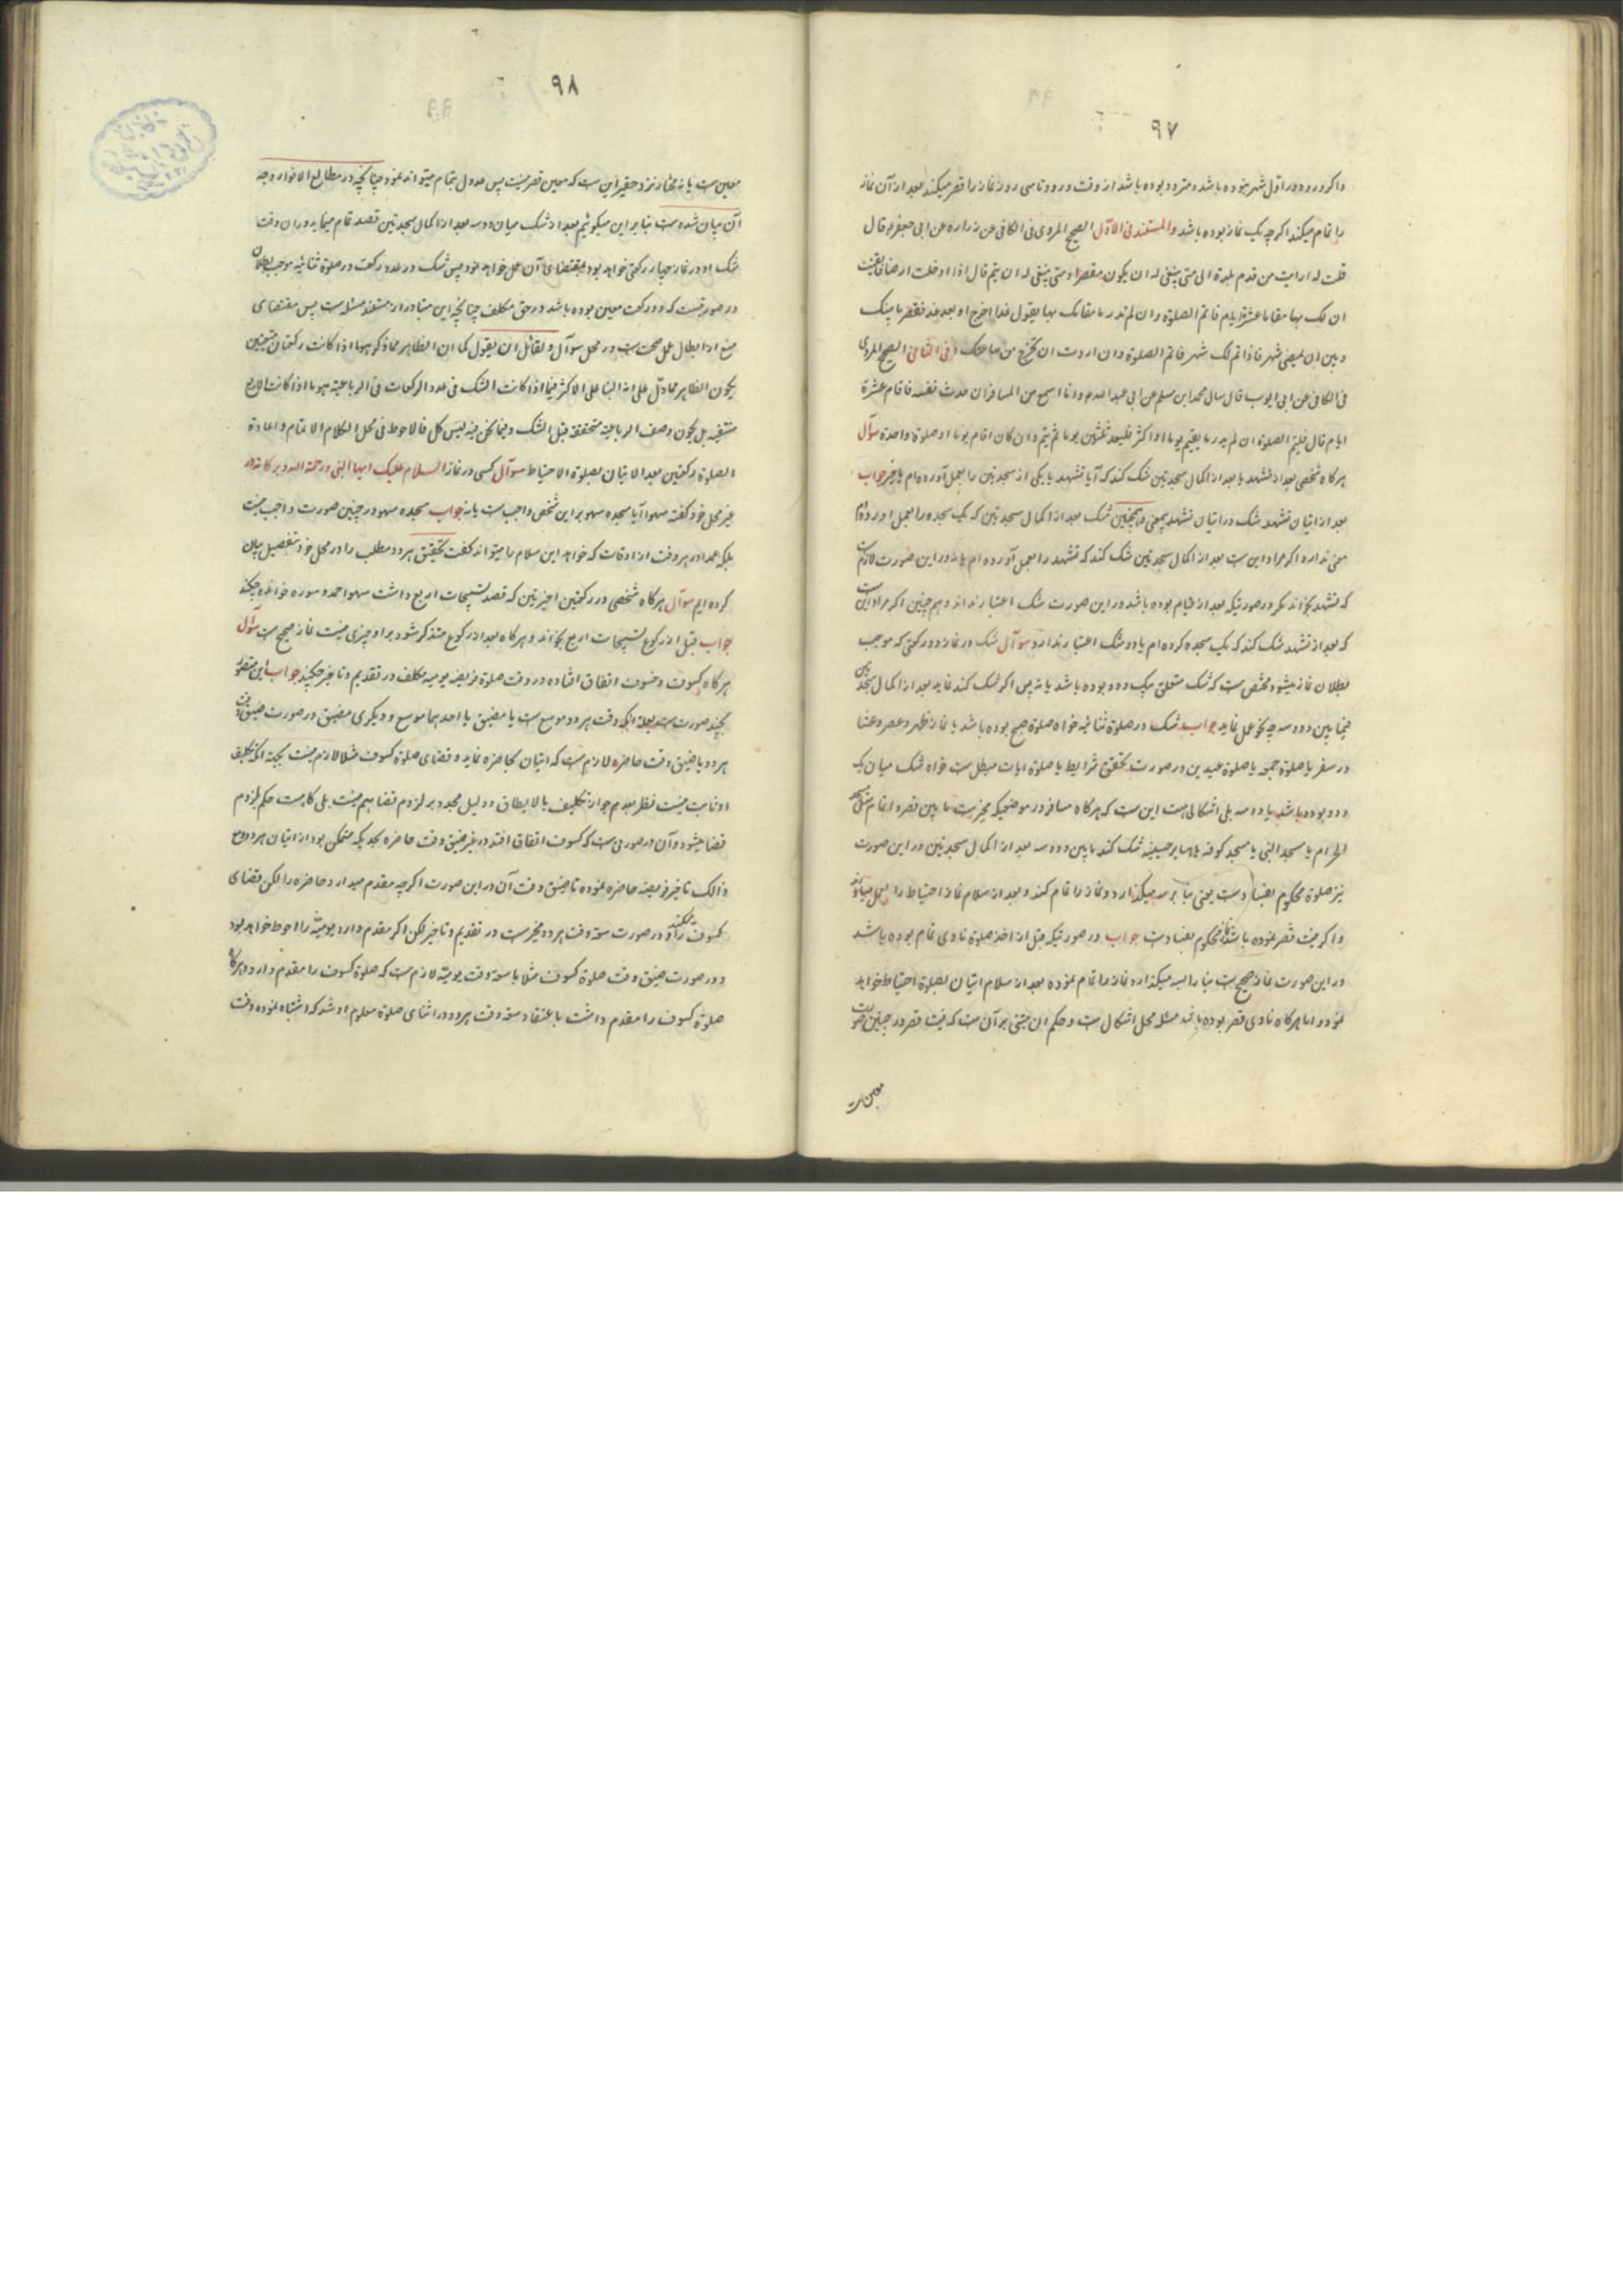 ۹۷
و اگر ورود در اول شهر نبوده باشد و متردد بوده باشد از وقت ورود تا سی روز نماز را قصر میکند بعد از آن نماز
را تمام میکند اگر چه یک نماز بوده باشد والمستند فی الاول الصحیح المروی فی الکافی عن زراره عن ابی جعفر قال
قلت له ارایت من قدم بلدة الی متی ینبغی له ان یکون مقصرا و متی ینبغی له ان یتم قال اذا دخلت ارضا فایقنت
ان لک بها مقام عشرة ایام فاتم الصلوة و ان لم تدر ما مقامک بها یقول غدا اخرج او بعد غد فقصر ما بینک
و بین ان یمضی شهر فاذا تم لک شهر فاتم الصلوة و ان اردت ان تخرج من ساعتک و فی الثانی الصحیح المروی
فی الکافی عن ابی ایوب قال سال محمد ابن مسلم عن ابی عبد الله م و انا اسمع من المسافر ان حدث نفسه فاقام عشرة
ایام قال فلیتم الصلوة ان لم یدر ما یقیم یوما او اکثر فلیعد ثلثین یوما ثم یتم و ان کان اقام یوما او صلوة واحدة سوآل
هر کاه شخصی بعد از تشهد یا بعد از اکمال سجدتین شک کند که آیا تشهد یا یکی از سجدتین را بعمل آورده ام یا خیر جواب
بعد از اتیان تشهد شک در اتیان تشهد بیمعنی و همچنین شک بعد از اکمال سجدتین که یک سجده را بعمل آورده ام
معنی ندارد اکر مراد این ست بعد از اکمال سجدتین شک کند که تشهد را بعمل آورده ام یا نه در این صورت لازم ست
که تشهد بخواند مکر در صورتیکه بعد از قیام بوده باشد در این صورت شک اعتبار ندارد و هم چنین اکر مراد این ست
که بعد از تشهد شک کند که یک سجده کرده ام یا دو شک اعتبار ندارد سوآل شک در نماز دو رکعتی که موجب
بطلان نماز میشود مختص ست که شک متعلق بیک و دو بوده باشد یا نه پس اکر شک کند نماید بعد از اکمال سجدتین
فیما بین دو و سه چه نحو عمل نماید جواب شک در صلوة ثنائیه خواه صلوة صبح بوده باشد یا نماز ظهر و عصر و عشا
در سفر یا صلوة جمعه یا صلوة عیدین در صورت تحقق شرایط یا صلوة ایات مبطل ست خواه شک میان یک
و دو بوده باشد یا دو و سه بلی اشکالی هست این ست که هر کاه مسافر در موضعیکه مخیر ست ما بین قصر و اتمام مثل مسجد
الحرام یا مسجد النبی یا مسجد کوفه یا حایر حسینیه شک کند ما بین دو و سه بعد از اکمال سجدتین در این صورت
نیز صلوة محکوم بفساد ست یعنی بنا بر سه میکذارد و نماز را تمام کند و بعد از سلام نماز احتیاط را بعمل میاورد
و اکر نیت قصر نموده باشد محکوم بفساد ست جواب در صورتیکه قبل از اخذ صلوة ناوی تمام بوده باشد
در این صورت نماز صحیح ست بنا را بسه میکذارد و نماز را تمام نموده بعد از سلام اتیان بصلوة احتیاط خواهد
نمود و اما هر کاه ناوی قصر بوده باشد مسئله محل اشکال ست و حکم ان مبتنی بر آن ست که نیت قصر در چنین صورت
معین ست
۹۸
معین ست یا نه مختار نزد حقیر این ست که معین قصر نیست پس عدول بتمام میتواند نمود چنانچه در مطالع الانوار وجه
آن بیان شده ست بنا بر این میکوئیم بعد از شک میان دو و سه بعد از اکمال سجدتین قصد تمام مینماید در ان وقت
شک او در نماز چهار رکعتی خواهد بود بمقتضای آن عمل خواهد نمود پس شک در عدد رکعت در صلوة ثنائیه موجب بطلان
در صورتیست که دو رکعت معین بوده باشد در حق مکلف چنانچه این متبادر از مستند مسئله ست پس مقتضای
منع از ابطال عمل صحت ست در محل سوآل و لقائل ان یقول کما ان الظاهر مما ذکر هو ما اذا کانت رکعتان متعینتین
یکون الظاهر مما دل علی انه البنا علی الاکثر فیما اذا کانت الشک فی عدد الرکعات فی الرباعیة هو ما اذا کانت الاربع
متعینة بل یکون وصف الرباعیة متحققة قبل الشک و فیما نحن فیه لیس کل فالاحوط فی محل الکلام الاتمام و اعادة
الصلوة رکعتین بعد الاتیان بصلوة الاحتیاط سوآل کسی در نماز السلام علیک ایها النبی و رحمة الله و برکاته در
غیر محل خود کفته سهوا آیا سجده سهو بر این شخص واجب ست یا نه جواب سجده سهو در چنین صورت واجب نیست
بلکه عمدا در هر وقت از اوقات که خواهد این سلام را میتواند کفت تحقیق هر دو مطلب را در محل خود بتفصیل بیان
کرده ایم سوآل هر کاه شخصی در رکعتین اخیرتین که قصد تسبیحات اربع داشت سهوا حمد و سوره خوانده چکند
جواب قبل از رکوع تسبیحات اربع بخواند و هر کاه بعد از رکوع متذکر شود بر او چیزی نیست نماز صحیح ست سوآل
هر کاه کسوف و خسوف اتفاق افتاده در وقت صلوة فریضه یومیه مکلف در تقدیم و تاخیر چکند جواب این منقسم
بچند صورت ست بعلة انکه وقت هر دو موسع ست یا مضیق یا احدهما موسع و دیکری مضیق در صورت ضیق وقت
هر دو یا ضیق وقت حاضره لازم ست که اتیان بحاضره نماید و قضای صلوة کسوف مثلا لازم نیست بجهة انکه تکلیف
او ثابت نیست نظر بعدم جواز تکلیف بما لا یطاق و دلیل مجدد بر لزوم قضا هم نیست بلی کاه ست حکم بلزوم
قضا میشود و آن در صورتی ست که کسوف اتفاق افتد در غیر ضیق وقت حاضره بحدیکه متمکن بود از اتیان هر دو و مع
ذالک تاخیر فریضه حاضره نموده تا ضیق وقت آن در این صورت اکر چه مقدم میدارد حاضره را لکن قضای
کسوف را میکند و در صورت سعة وقت هر دو مخیر ست در تقدیم و تاخیر لکن اکر مقدم دارد یومیه را احوط خواهد بود
و در صورت ضیق وقت صلوة کسوف مثلا با سعة وقت یومیه لازم ست که صلوة کسوف را مقدم دارد و هر کاه
صلوة کسوف را مقدم داشت باعتقاد سعة وقت هر دو در اثنای صلوة معلوم او شد که اشتباه نموده وقت